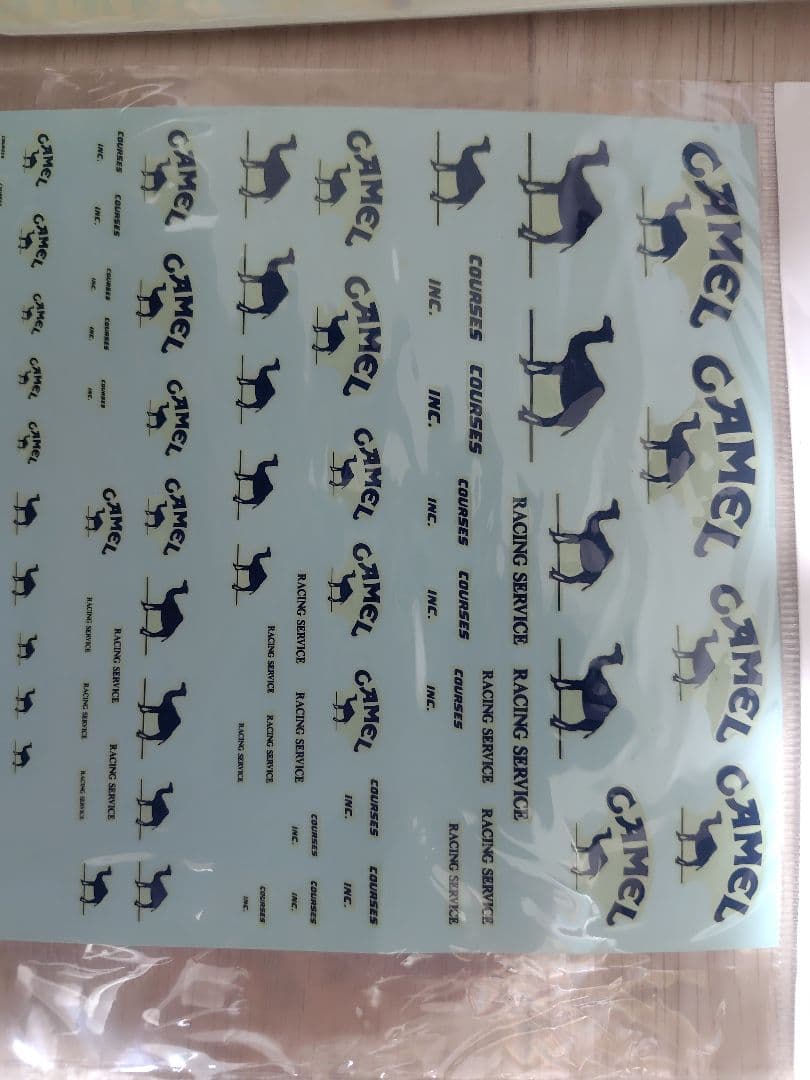 CAMEL CAMEL CAMEL CAMEL
CAMEL
RACING SERVICE RACING SERVICE
COURSES COURSES RACING SERVICE RACING SERVICE
COURSES COURSES COURSES RACING SERVICE
INC. INC. INC. INC. INC.
CAMEL CAMEL CAMEL CAMEL CAMEL COURSES COURSES
INC. INC.
COURSES COURSES
RACING SERVICE RACING SERVICE INC. INC.
RACING SERVICE RACING SERVICE COURSES
RACING SERVICE INC.
CAMEL CAMEL CAMEL CAMEL
COURSES COURSES RACING SERVICE RACING SERVICE
COURSES COURSES COURSES CAMEL
INC. INC. INC. INC. INC. RACING SERVICE RACING SERVICE RACING SERVICE
CAMEL CAMEL CAMEL CAMEL CAMEL